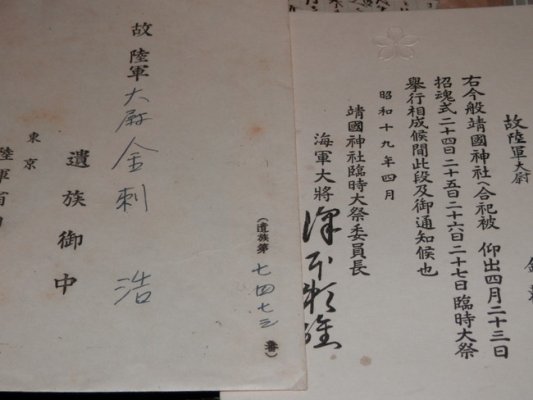 故陸軍大尉
右今般靖國神社ヘ合祀被 仰出四月二十三日
招魂式二十四日二十五日二十六日二十七日臨時大祭
擧行相成候間此段及御通知候也
昭和十九年四月
靖國神社臨時大祭委員長
海軍大將 澤本頼雄
(遺族第 七四七三 番)
故 陸軍大尉金刺 浩
遺族御中
東京